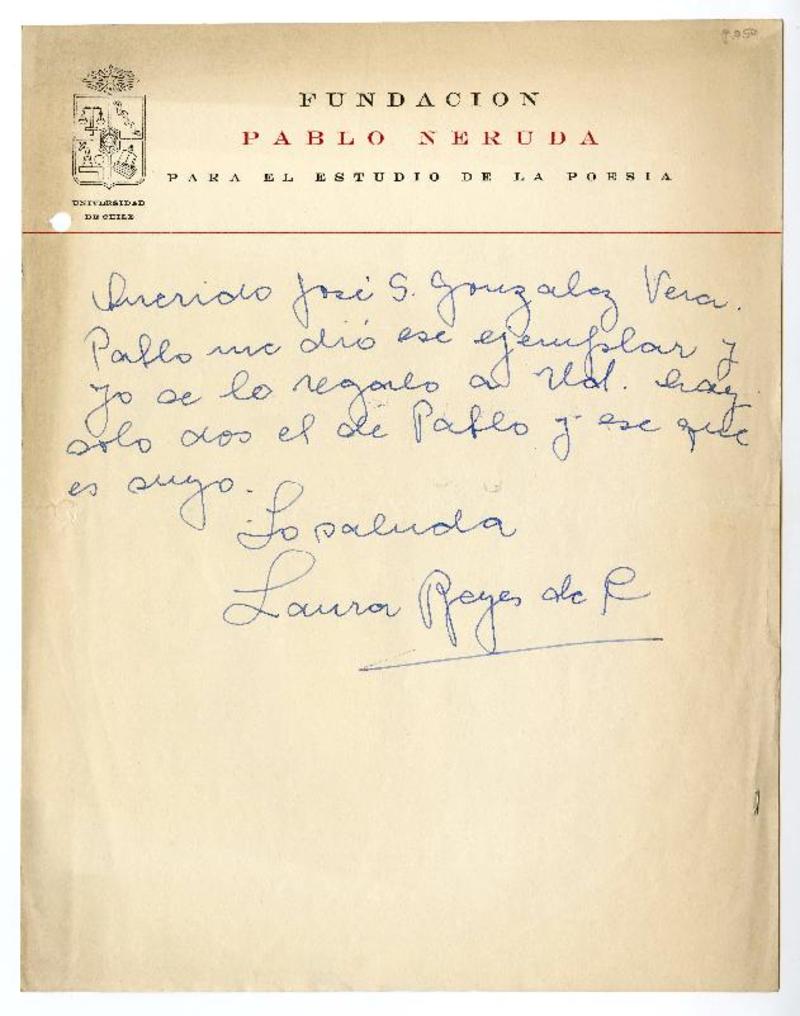 FUNDACION
PABLO NERUDA
PARA EL ESTUDIO DE LA POESIA
UNIVERSIDAD
DE CHILE
Querido José S. Gonzalez Vera.
Pablo me dió ese ejemplar y
yo se lo regalo a Ud. hay
solo dos el de Pablo y ese que
es suyo.
Lo saluda
Laura Reyes de R